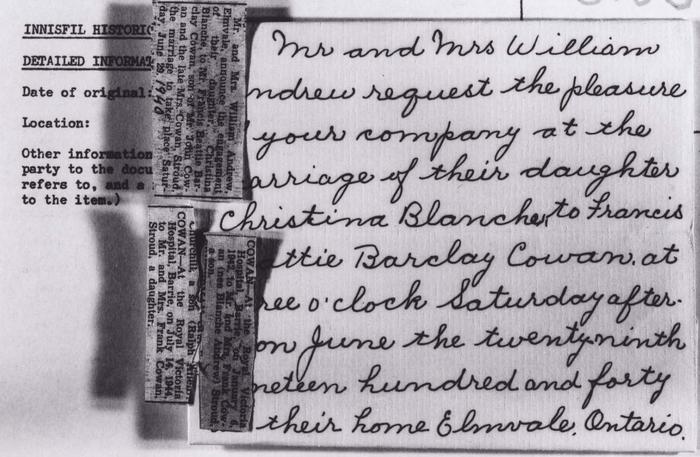 INNISFIL HISTORIC
DETAILED INFORMAT
Date of original:
Location:
Other information
party to the docu
refers to, and a
to the item.)
Mr. and Mrs. William Andrew,
Elmvale, announce the engagement
of their daughter, Christina
Blanche, to Mr. Francis Beattie Bar-
clay Cowan, son of Mr. John Cow-
an and the late Mrs. Cowan, Stroud,
the marriage to take place Satur-
day, June 29, 1940
Mr and Mrs William
ndrew request the pleasure
your company at the
arriage of their daughter
Christina Blanche, to Francis
ttie Barclay Cowan, at
ree o'clock Saturday after-
on June the twenty ninth
neteen hundred and forty
their home Elmvale, Ontario.
Churchill, a son (Ralph
COWAN—At the Royal Victoria
Hospital, Barrie, on July 14, 1944,
to Mr. and Mrs. Frank Cowan,
Stroud, a daughter.
COWAN—At the Royal Victoria
Hospital, Barrie, on January 4,
1942, to Mr. and Mrs. Frank Cow-
an (nee Blanche Andrew) Stroud,
a son.